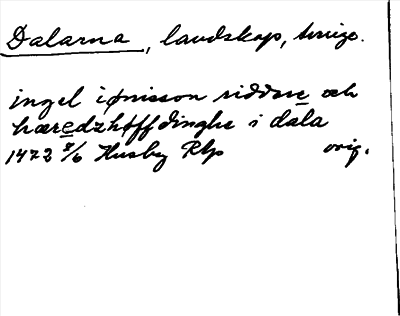 Dalarna, landskap, Sverige.
ingel iønisson riddare och
hæredzhøffdinghe i dala
1472 8/6 Husby Rlp orig.